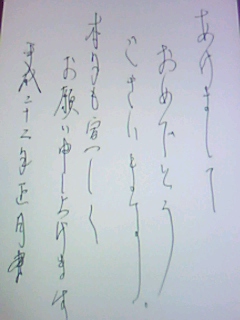 あけまして
おめでとう
ございます。
本年も宜しく
お願い申し上げます
平成二十二年正月